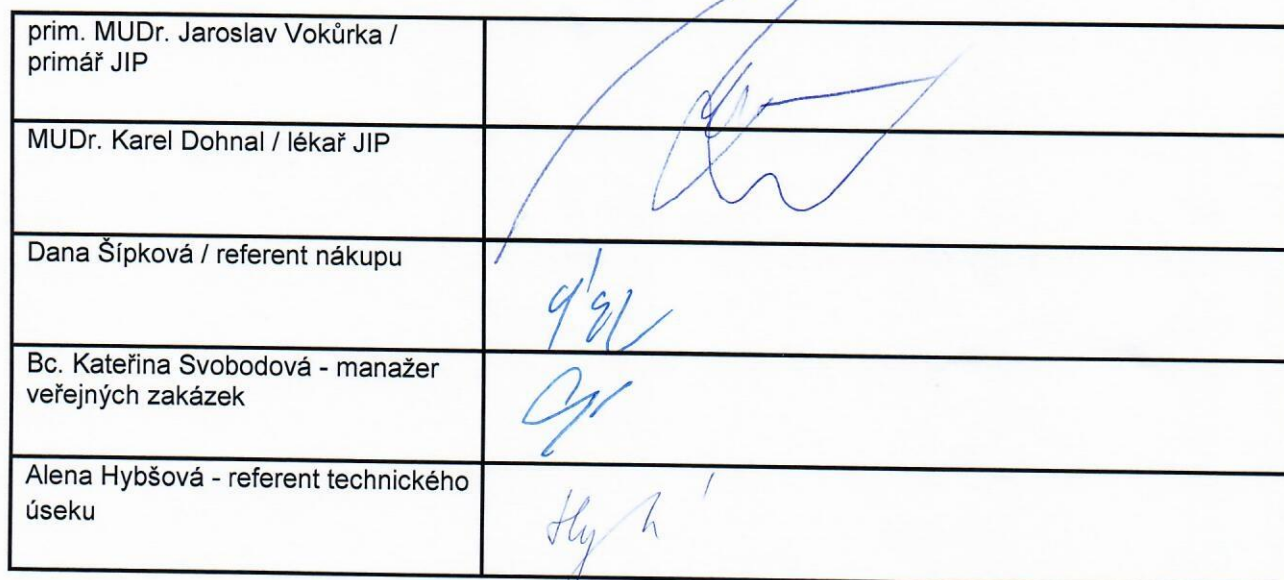 prim. MUDr. Jaroslav Vokůrka /
primář JIP
MUDr. Karel Dohnal / lékař JIP
Dana Šípková / referent nákupu
Bc. Kateřina Svobodová - manažer
veřejných zakázek
Alena Hybšová - referent technického
úseku